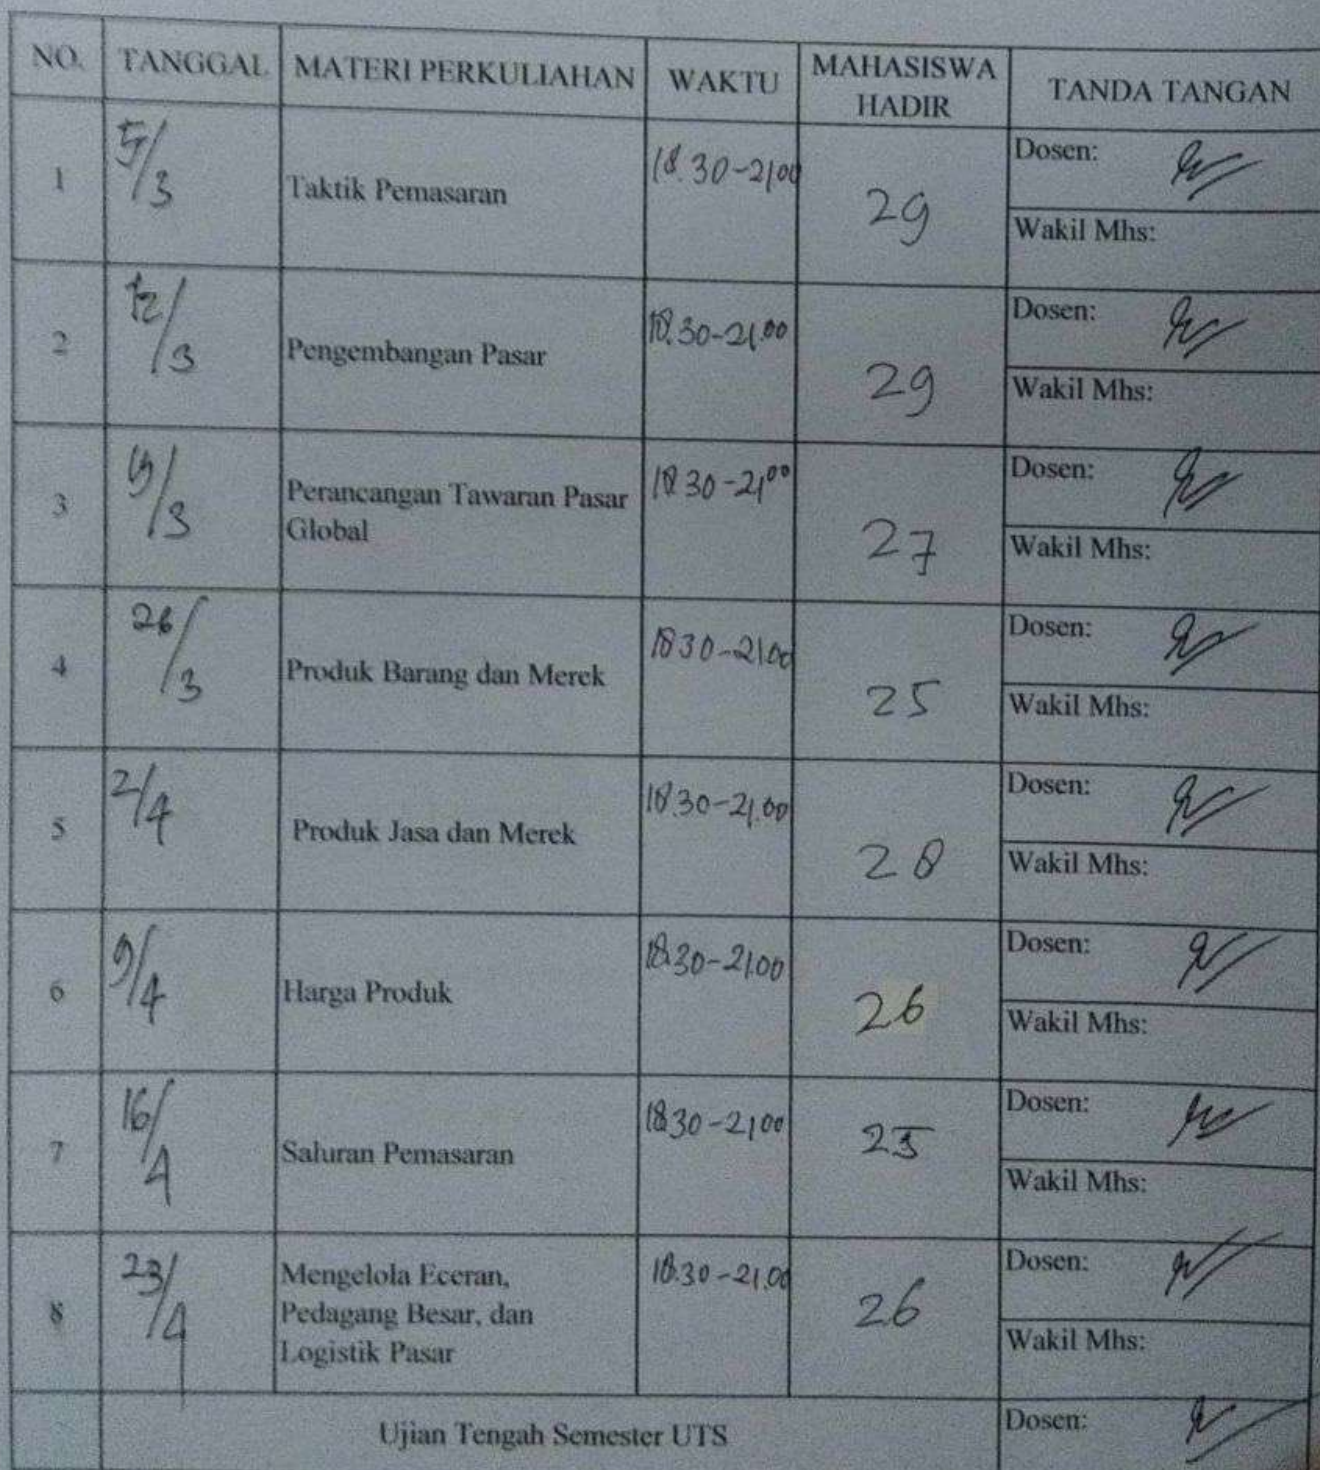 NO. TANGGAL MATERI PERKULIAHAN WAKTU MAHASISWA HADIR TANDA TANGAN
1 5/3 Taktik Pemasaran 18.30-21.00 29 Dosen:
Wakil Mhs:
2 12/3 Pengembangan Pasar 18.30-21.00 29 Dosen:
Wakil Mhs:
3 19/3 Perancangan Tawaran Pasar 18.30-21.00 27 Dosen:
Global
Wakil Mhs:
4 26/3 Produk Barang dan Merek 18.30-21.00 25 Dosen:
Wakil Mhs:
5 2/4 Produk Jasa dan Merek 18.30-21.00 28 Dosen:
Wakil Mhs:
6 9/4 Harga Produk 18.30-21.00 26 Dosen:
Wakil Mhs:
7 16/4 Saluran Pemasaran 18.30-21.00 25 Dosen:
Wakil Mhs:
8 23/4 Mengelola Eceran, 18.30-21.00 26 Dosen:
Pedagang Besar, dan
Logistik Pasar
Wakil Mhs:
Ujian Tengah Semester UTS Dosen: